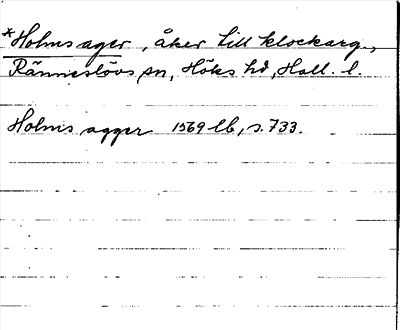 *Holms ager, åker till klockarg.,
Ränneslövs sn, Höks hd, Hall. l.
Holms agger 1569 lb, s. 733.